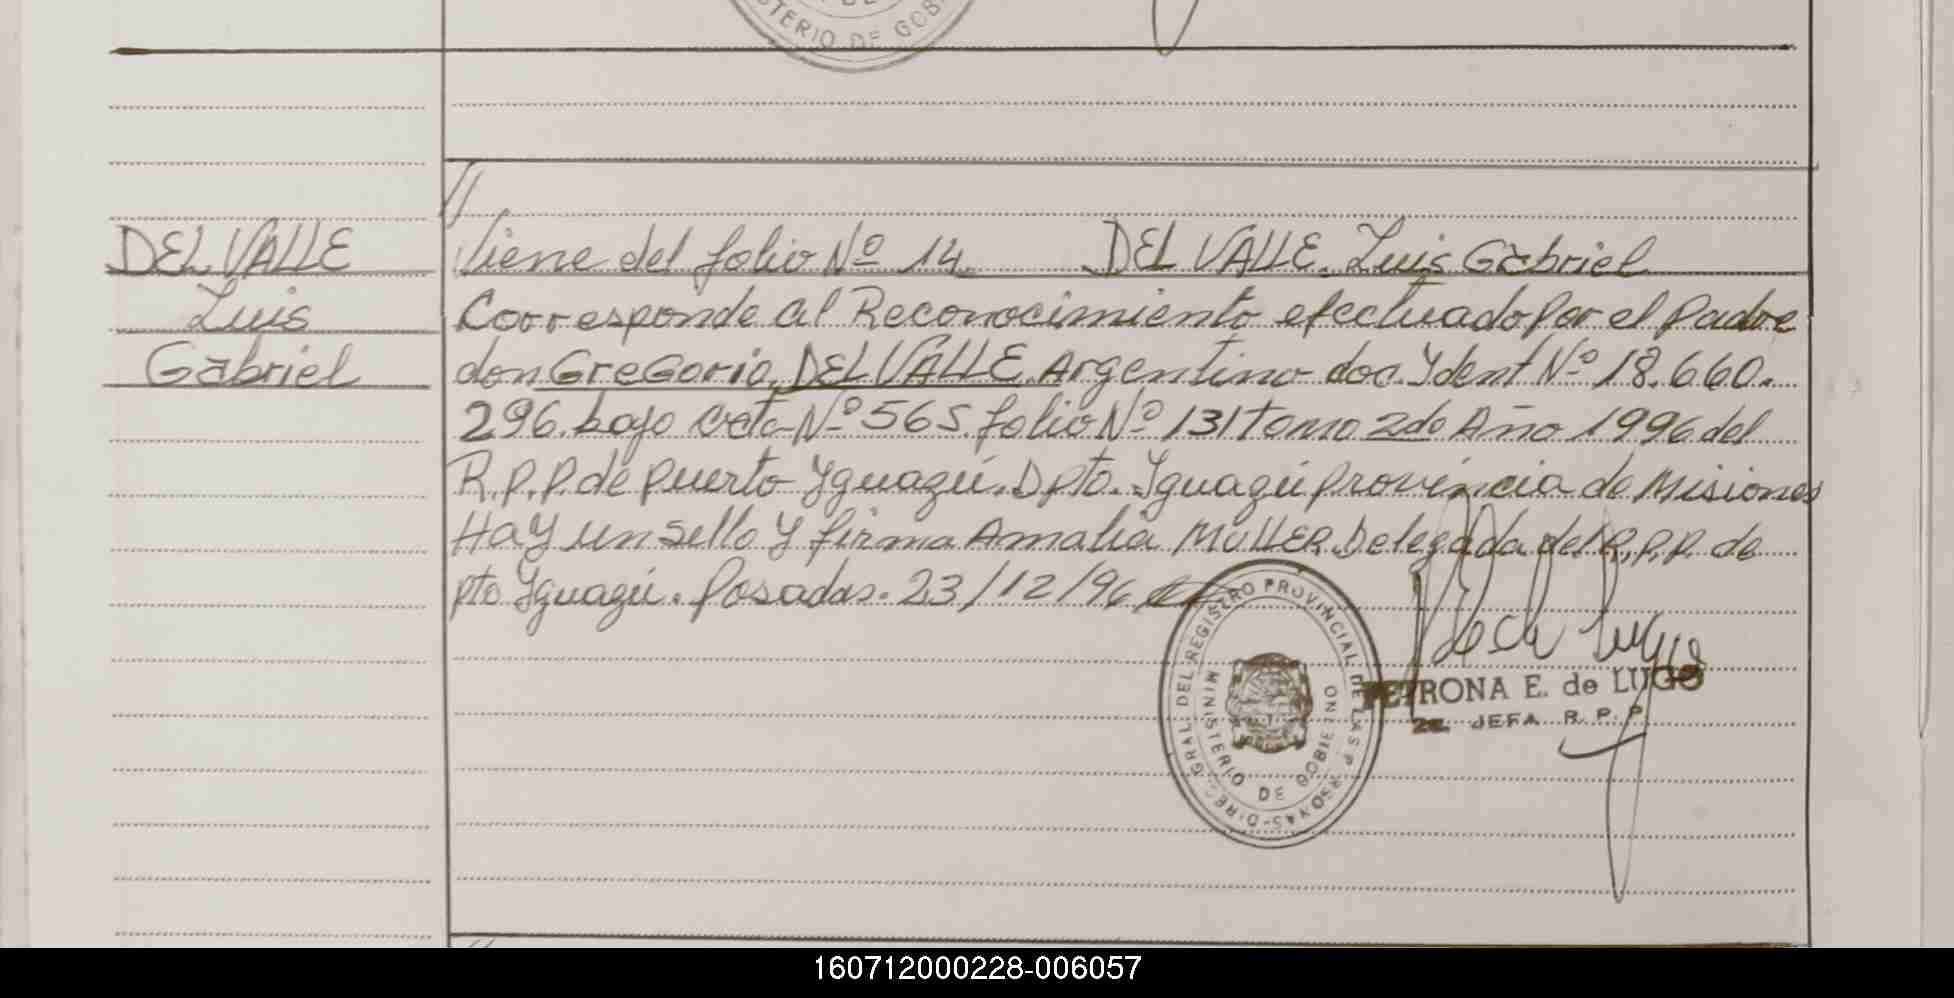 MINISTERIO DE GOB
//
DEL VALLE
Luis
Gabriel
Viene del folio Nº 14 DEL VALLE. Luis Gabriel
Corresponde al Reconocimiento efectuado por el padre
don Gregorio. DEL VALLE. Argentino doc. Ydent Nº 18.660.
296. bajo acta Nº 565. folio Nº 131 tomo 2do Año 1996 del
R.P.P. de puerto Yguazú. Dpto. Yguazú provincia de Misiones
Hay un sello y firma Amalia MULLER. Delegada del R.P.P. de
pto Yguazú. Posadas. 23/12/96
DIREC. GRAL. DEL REGISTRO PROVINCIAL DE LAS P RSONAS
MINISTERIO DE GOBIE NO
PETRONA E. de LUGO
2a. JEFA R. P. P.
160712000228-006057